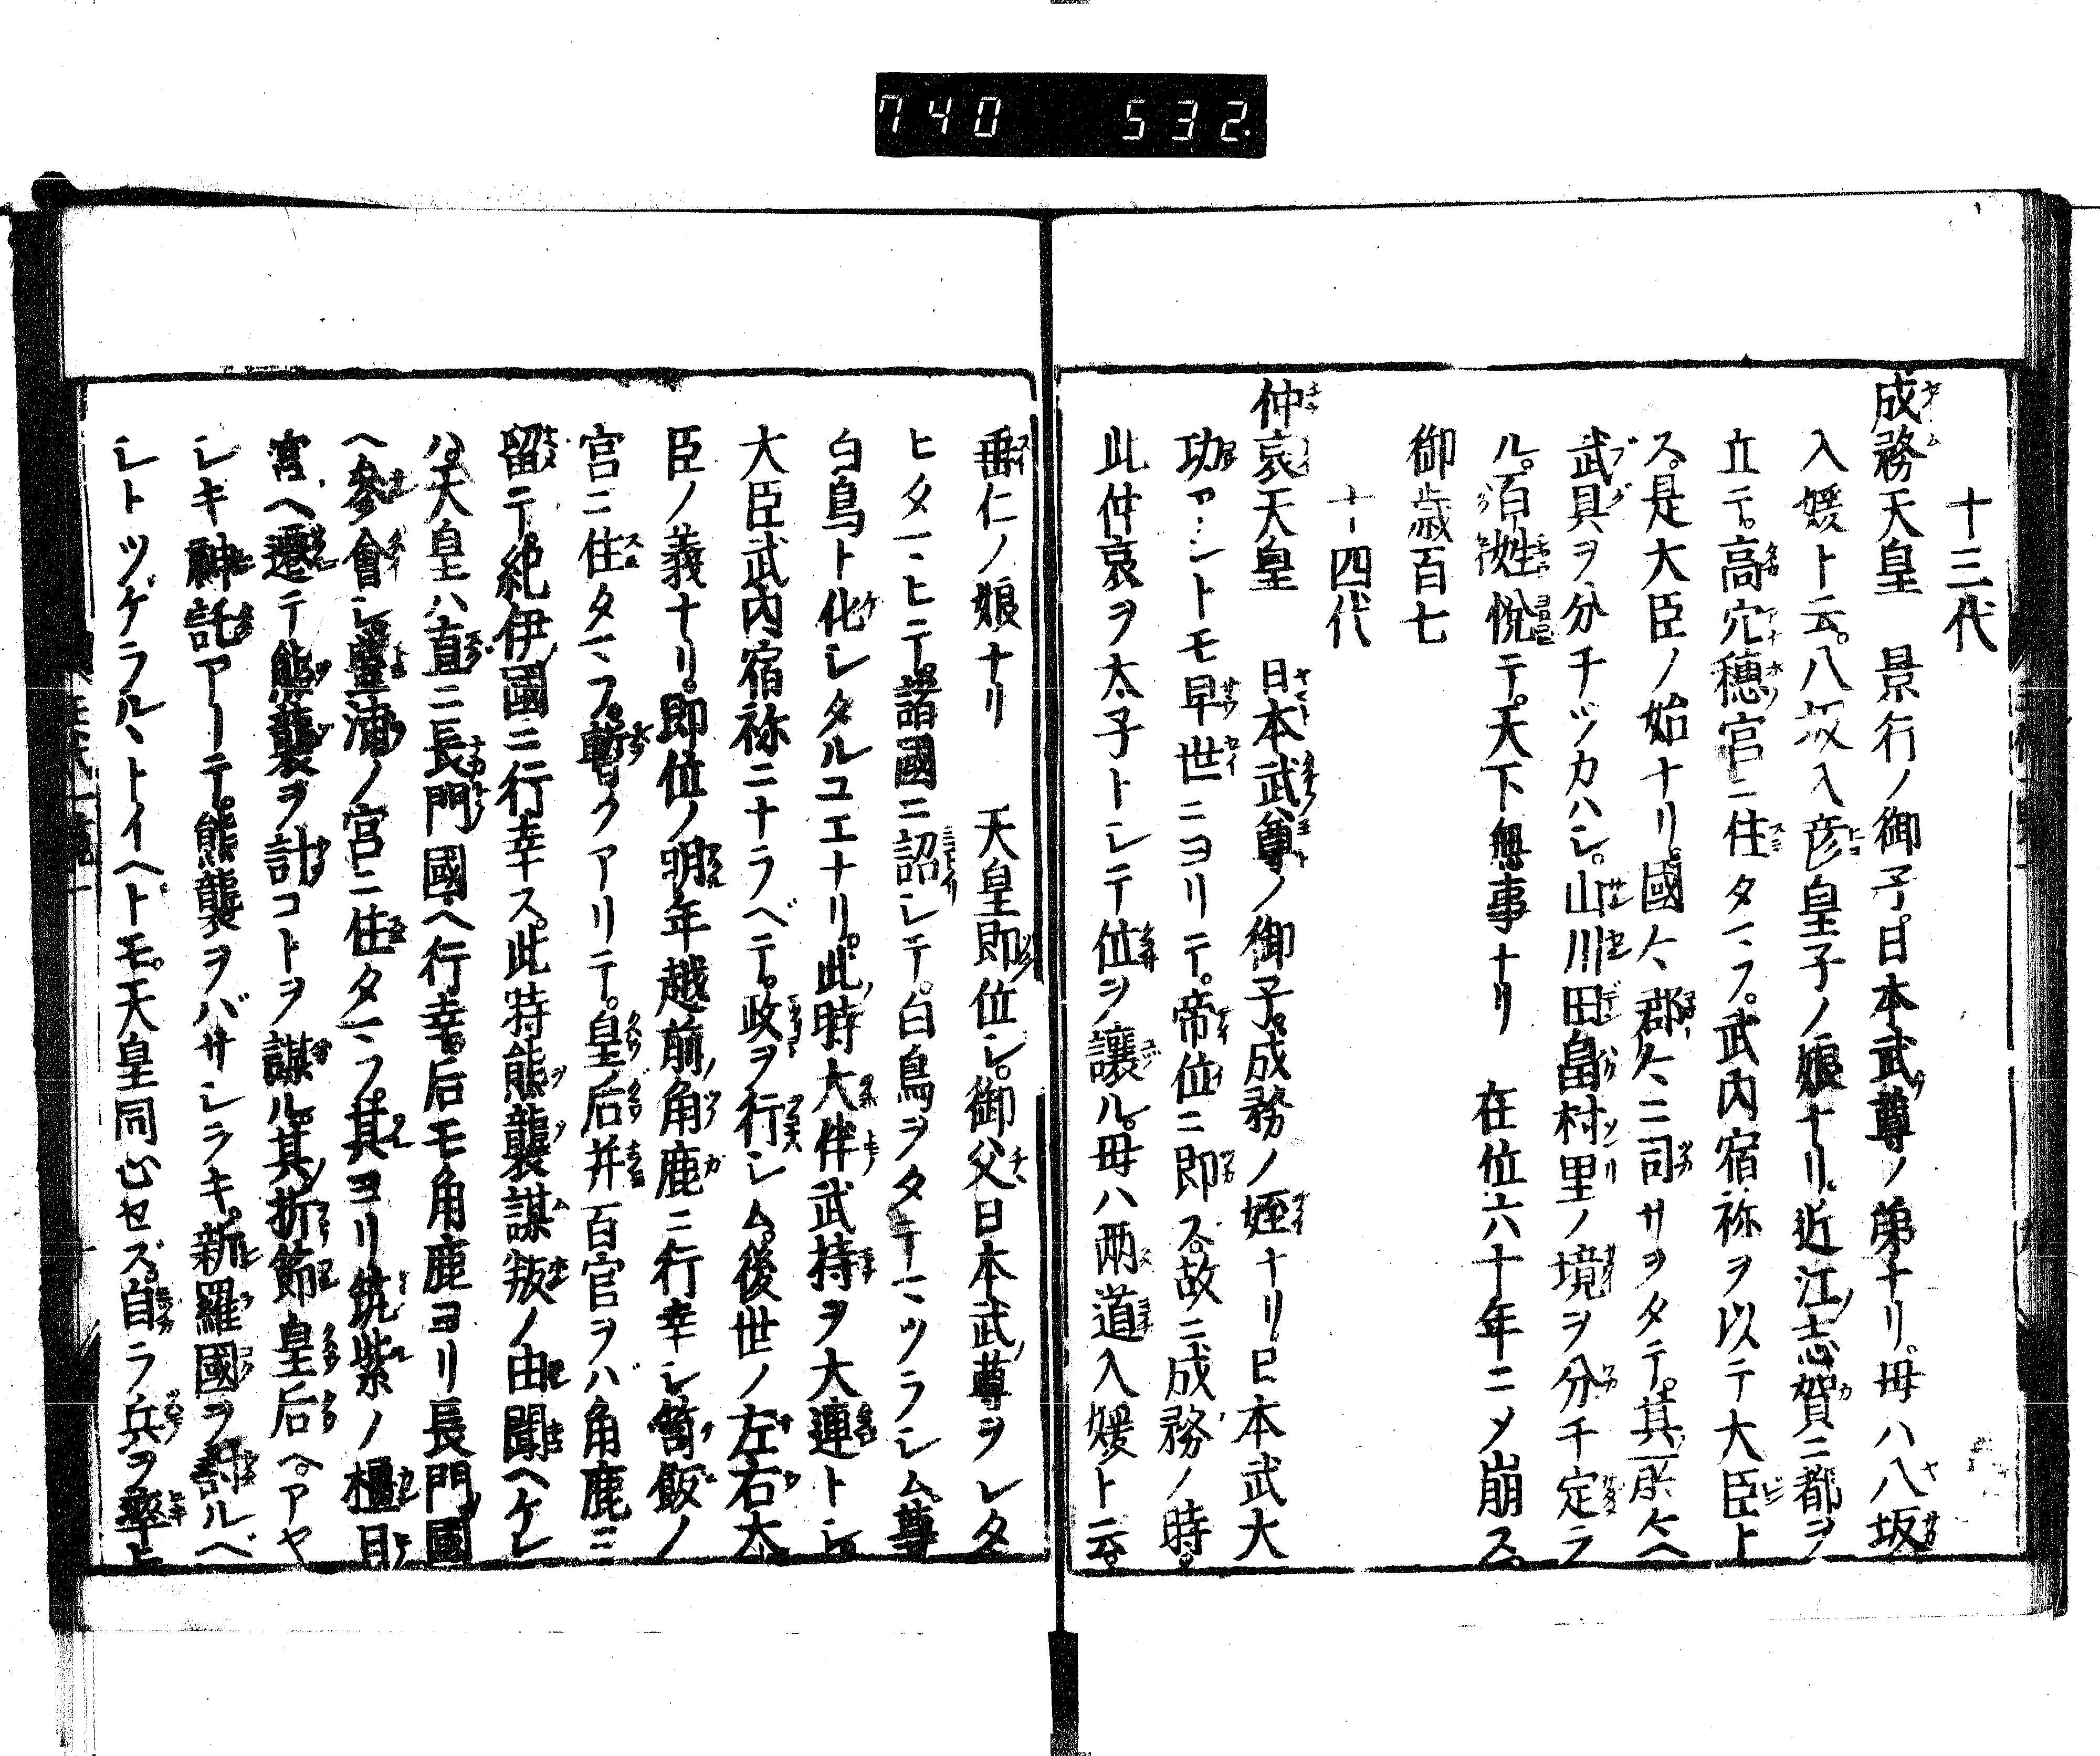 740 532.
十三代
成務天皇 景行ノ御子。日本武尊ノ弟ナリ。母ハ八坂
入媛ト云。八坂入彦皇子ノ娘ナリ。近江志賀ニ都ヲ
立テ。高穴穂宮ニ住タマフ。武内宿祢ヲ以テ大臣ト
ス。是大臣ノ始ナリ。國々郡々ニ司サヲタテ。其所々ヘ
武具ヲ分チツカハシ。山川田畠村里ノ境ヲ分チ定ラ
ル。百姓悦テ。天下無事ナリ 在位六十年ニメ崩ス。
御歳百七
十四代
仲哀天皇 日本武尊ノ御子。成務ノ姪ナリ。日本武大
功アシトモ早世ニヨリテ。帝位ニ即ス。故ニ成務ノ時。
此仲哀ヲ太子トシテ位ヲ讓ル。母ハ兩道入媛ト云。
垂仁ノ娘ナリ 天皇即位シ。御父日本武尊ヲシタ
ヒタマヒテ。諸國ニ詔シテ。白鳥ヲタテマツラシム。尊
白鳥ト化シタルユエナリ。此時大伴武持ヲ大連トシ。
大臣武内宿祢ニナラベテ。政ヲ行シム。後世ノ左右大
臣ノ義ナリ。即位ノ明年越前角鹿ニ行幸シ笥飯ノ
宮ニ住タマフ。暫クアリテ。皇后并百官ヲハ角鹿ニ
留テ。紀伊國ニ行幸ス。此時熊襲謀叛ノ由聞ヘケレ
ハ。天皇ハ直ニ長門國ヘ行幸。后モ角鹿ヨリ長門國
ヘ參會シ豐浦ノ宮ニ住タマフ。其ヨリ筑紫ノ橿日
宮ヘ遷テ熊襲ヲ計コトヲ謀ル。其折節皇后ヘアヤ
シキ神託アーテ。熊襲ヲバサシヲキ。新羅國ヲ討ルベ
シトツゲラルヽトイヘトモ。天皇同心セズ。自ラ兵ヲ率ヒ